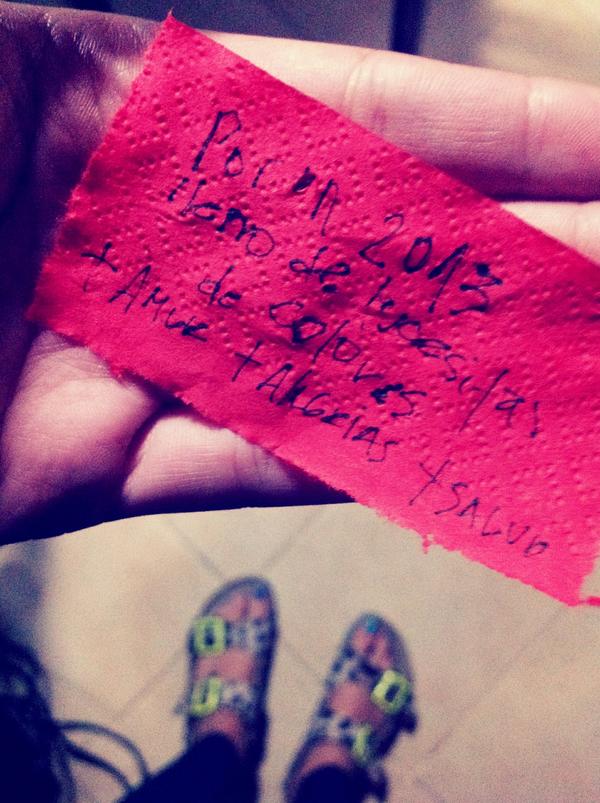 Por un 2013
lleno de lucesitas
de colores
+ AMOR + ALEGRIAS + SALUD